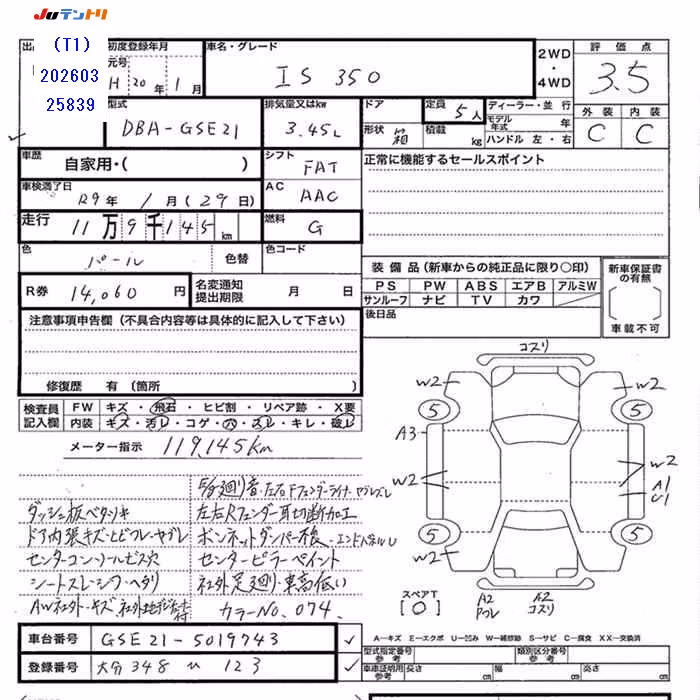 JUテントリ
(T1)
202603
25839
初度登録年月
車名・グレード
元号
H 20 年 1 月
IS 350
2WD
・
4WD
評価点
3.5
型式
DBA-GSE21
排気量又はkw
3.45L
ドア
形状 箱
定員 5人
積載 kg
ディーラー・並行
モデル年式 年
ハンドル 左・右
外装 内装
C C
車歴
自家用・( )
シフト
FAT
正常に機能するセールスポイント
車検満了日
R9年 1月(29日)
AC
AAC
走行
11万9千145 km
燃料
G
色
パール
色替
色コード
R券 14,060 円
名変通知
提出期限
月 日
装備品(新車からの純正品に限り○印)
PS PW ABS エアB アルミW
サンルーフ ナビ TV カワ
後日品
新車保証書の有無
車載不可
注意事項申告欄(不具合内容等は具体的に記入して下さい)
修復歴 有(箇所
検査員記入欄
FW キズ・飛石・ヒビ割・リペア跡・X要
内装 キズ・汚レ・コゲ・穴・スレ・キレ・破レ
メーター指示 119,145km
左右Fフェンダーライナーヤブレズレ
ダッシュ板ベタツキ
左右Rフェンダー耳切断加工
ドア内張キズ・ヒビフレ・ヤブレ
センターコンソールビス穴
センターピラーペイント
シートスレ・シワ・ヘタリ
社外足廻り・車高低い
AW社外・キズ
カラーNo.074.
コスリ
W2
W2
5
5
A3
W2
W2
W2
A1
U1
5
5
スペアT
[0]
A2
A2
コスリ
A-キズ E-エクボ U-凹み W-補修跡 S-サビ C-腐食 XX-交換済
車台番号 GSE21-5019743
登録番号 大分 348 ひ 123
型式指定番号
参考
類別区分番号
参考
車庫証明用
参考
長さ cm 幅 cm 高さ cm